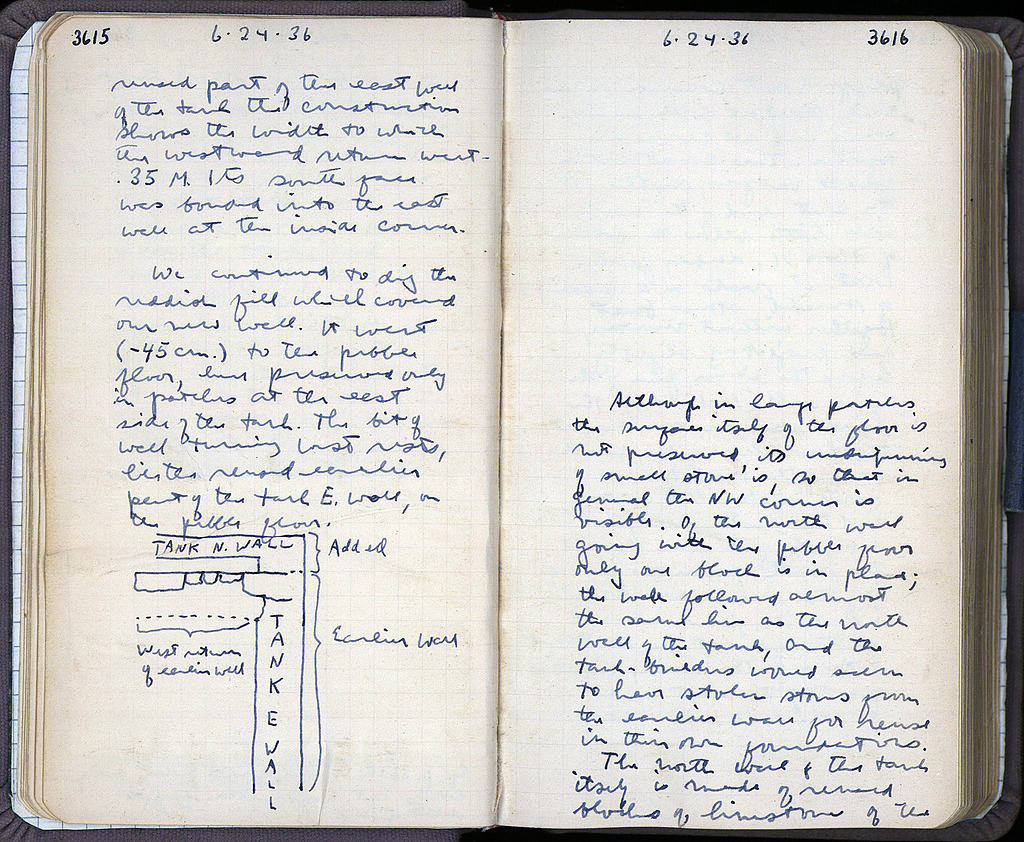 3615
6·24·36
reused part of the east wall
of the tank the construction
shows the width to which
the westward return went-
.35 M. Its south face
was bonded into the east
wall at the inside corner.
We continued to dig the
reddish fill which covered
our new wall. It went
(-45 cm.) to the pebble
floor, here preserved only
in patches at the east
side of the tank. The bit of
wall turning west rests,
like the reused earlier
part of the tank E. wall, on
the pebble floor.
TANK N. WALL
Added
Earlier wall
West return
of earlier wall
TANK E WALL
6·24·36
3616
Although in large patches
the surface itself of the floor is
not preserved, its underpinning
of small stone is, so that in
general the NW corner is
visible. Of the north wall
going with the pebble floor
only one block is in place;
the wall followed almost
the same line as the north
wall of the tank, and the
tank-builders would seem
to have stolen stones from
the earlier wall for reuse
in their own foundations.
The north wall of the tank
itself is made of reused
blocks of limestone of the